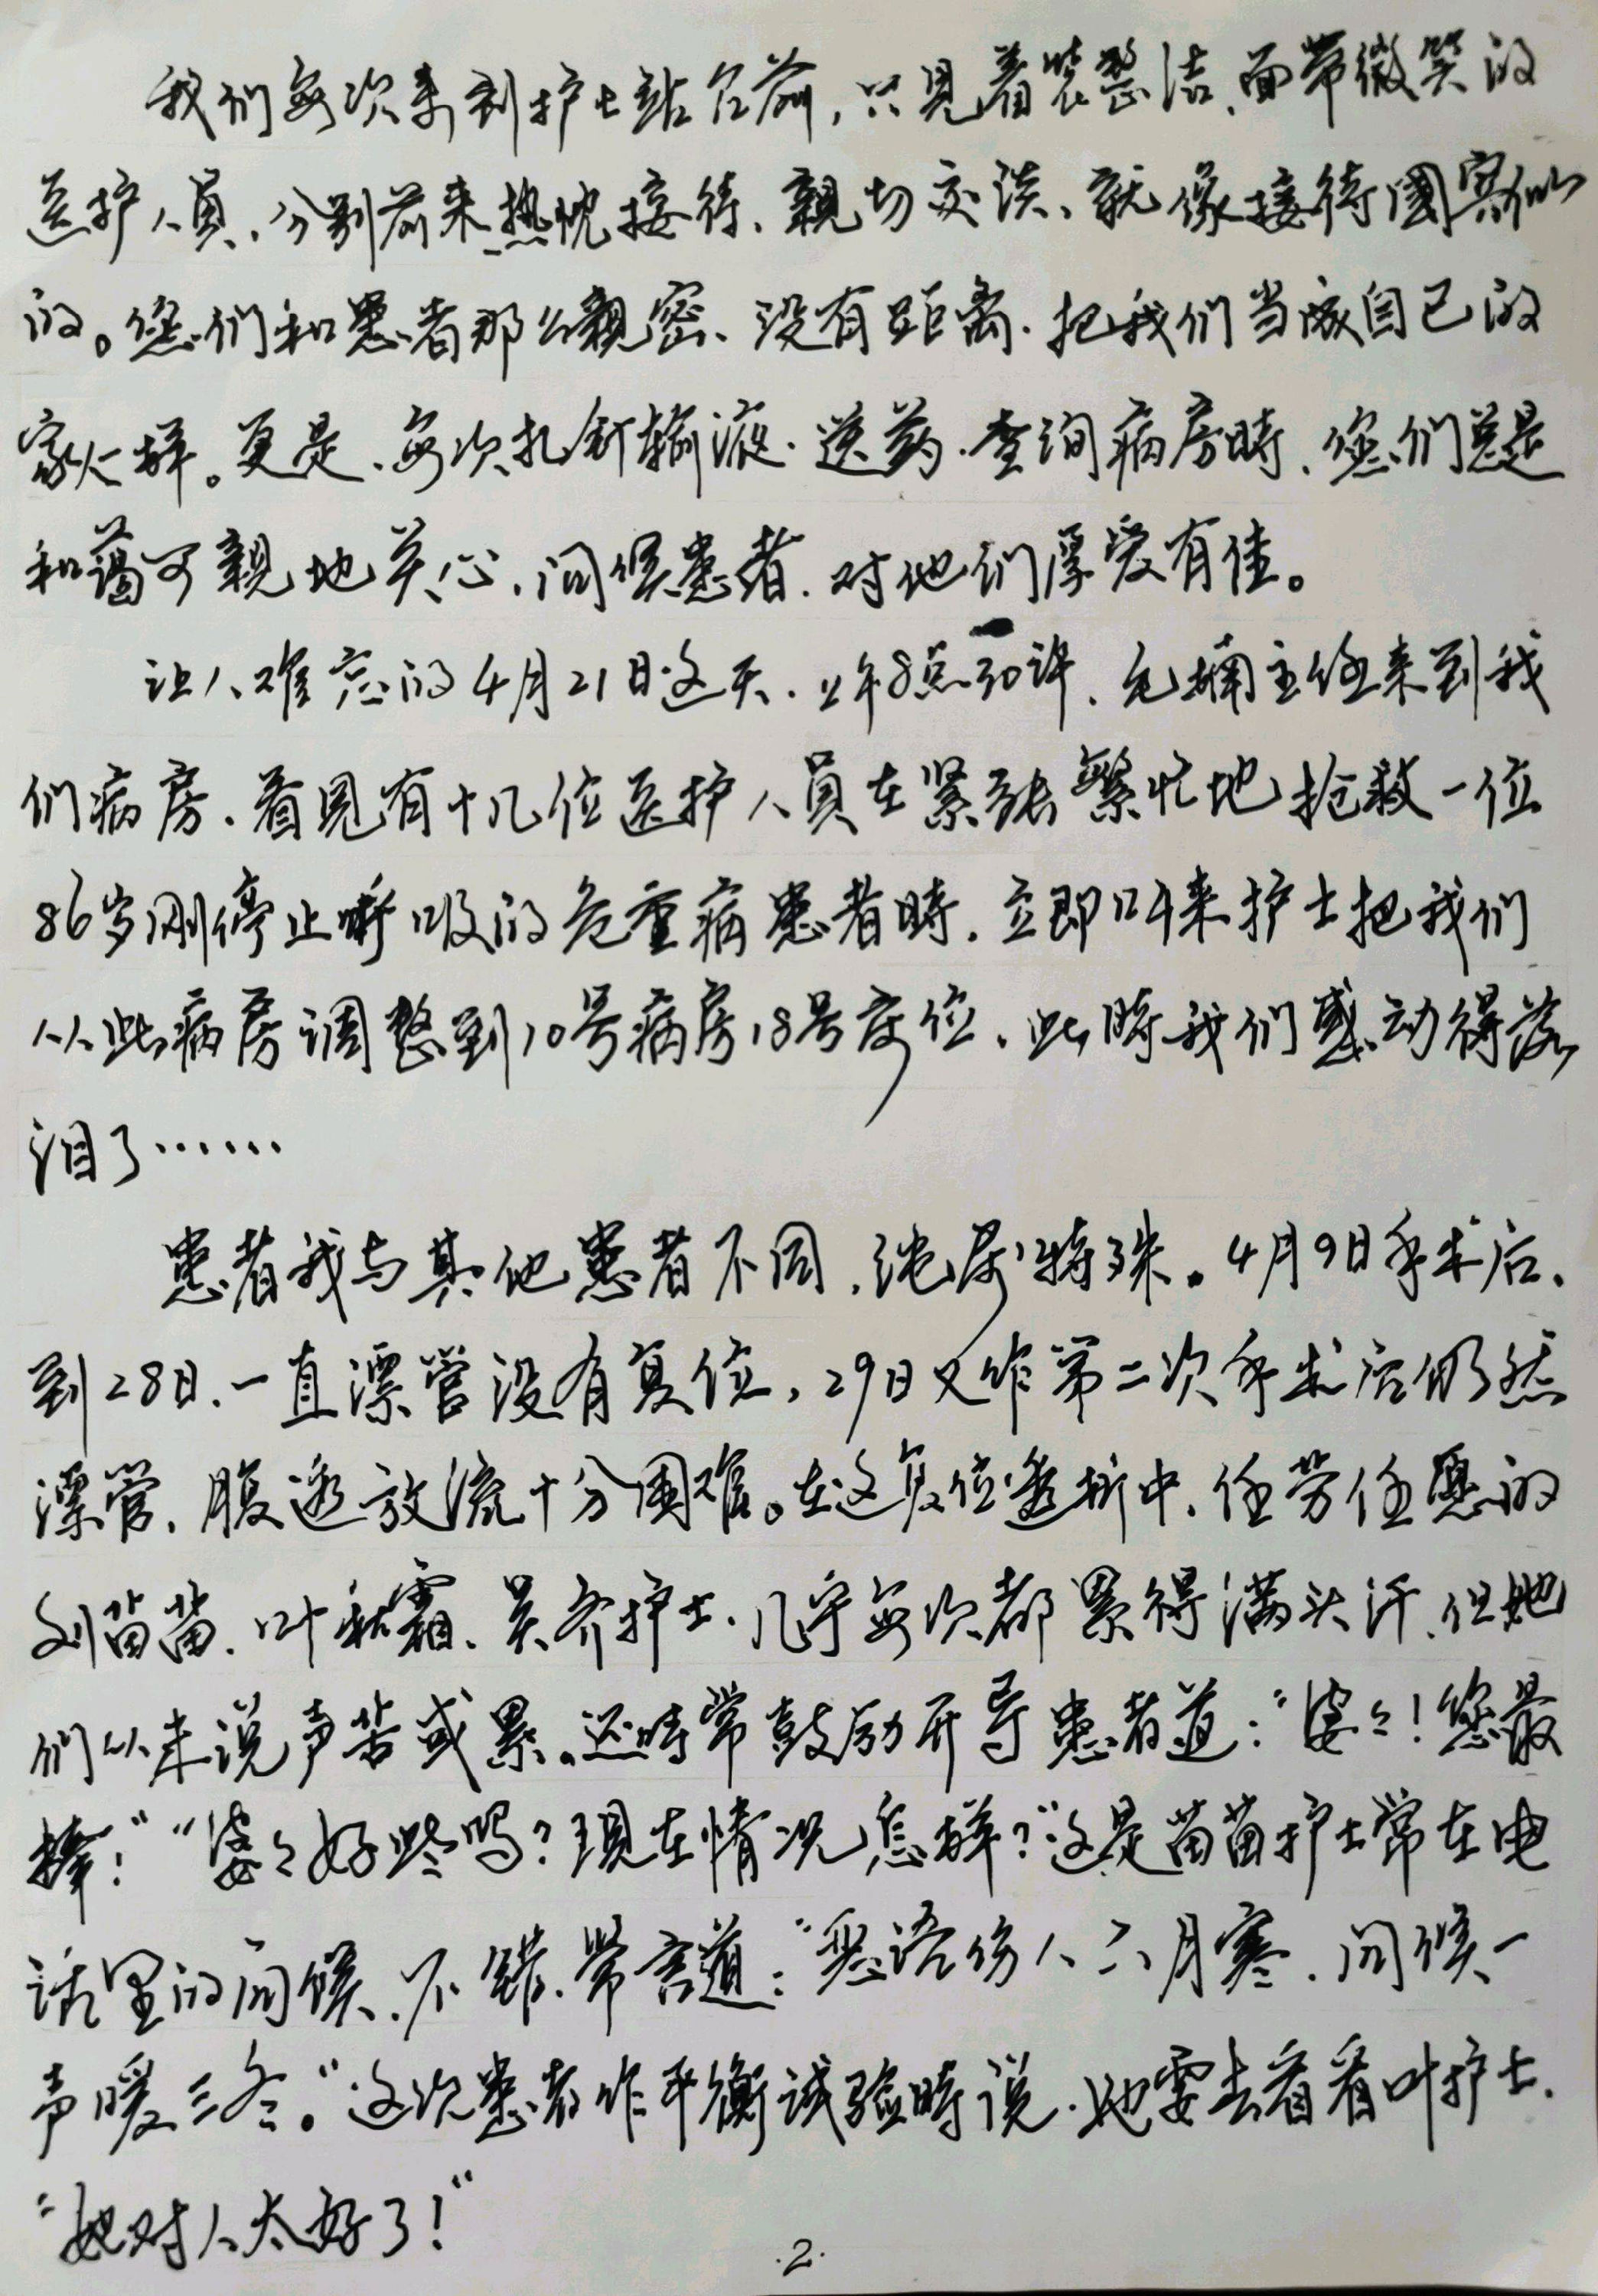 我们每次来到护士站台前,只见着装整洁、面带微笑的
医护人员、分别前来热忱接待、親切交谈、就像接待國宾似
的。您们和患者那么親密、没有距离、把我们当成自己的
家人一样。更是、每次扎针输液、送药、查询病房時、您们总是
和蔼可親地关心、问候患者、对他们厚爱有佳。
让人难忘的4月21日这天、上午8点30许、毛楠主任来到我
们病房、看見有十几位医护人員在紧張繁忙地抢救一位
86岁刚停止呼吸的危重病患者時、立即叫来护士把我们
从此病房调整到10号病房18号床位、此時我们感动得落
泪了……
患者我与其他患者不同,纯属特殊。4月9日手术后、
到28日、一直漂管没有复位,29日又作第二次手术后仍然
漂管、腹透放流十分困难。在这复位透析中、任劳任怨的
刘苗苗、叶秋霜、吴乔护士、几乎每次都累得满头汗、但她
们从未说声苦或累。还時常鼓励开导患者道:“婆々!您最
棒!”“婆々好些吗?現在情况怎样?”这是苗苗护士常在电
话里的问候、不错、常言道:“恶语伤人六月寒、问候一
声暖三冬。”这次患者作平衡试验時说、她要去看看叶护士、
“她对人太好了!”
·2·